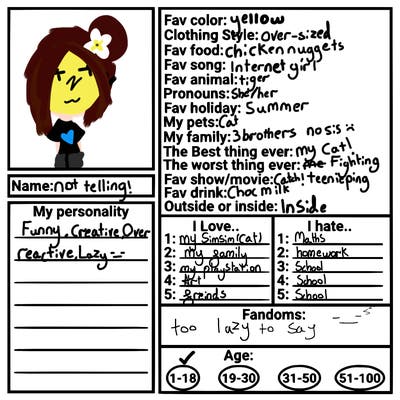 Fav color: yellow
Clothing Style: over-sized
Fav food: chicken nuggets
Fav song: Internet girl
Fav animal: tiger
Pronouns: She/her
Fav holiday: Summer
My pets: Cat
My family: 3 brothers no sis :c
The Best thing ever: my Cat!
The worst thing ever: Fighting
Fav show/movie: Catch! teenieping
Fav drink: Choc milk
Outside or inside: Inside
Name: not telling!
My personality
Funny, Creative, Over
reactive, Lazy
I Love..
1: my Simsim (cat)
2: my family
3: my playstation
4: Art
5: friends
I hate..
1: Maths
2: homework
3: School
4: School
5: School
Fandoms:
too lazy to say
Age:
1-18 19-30 31-50 51-100